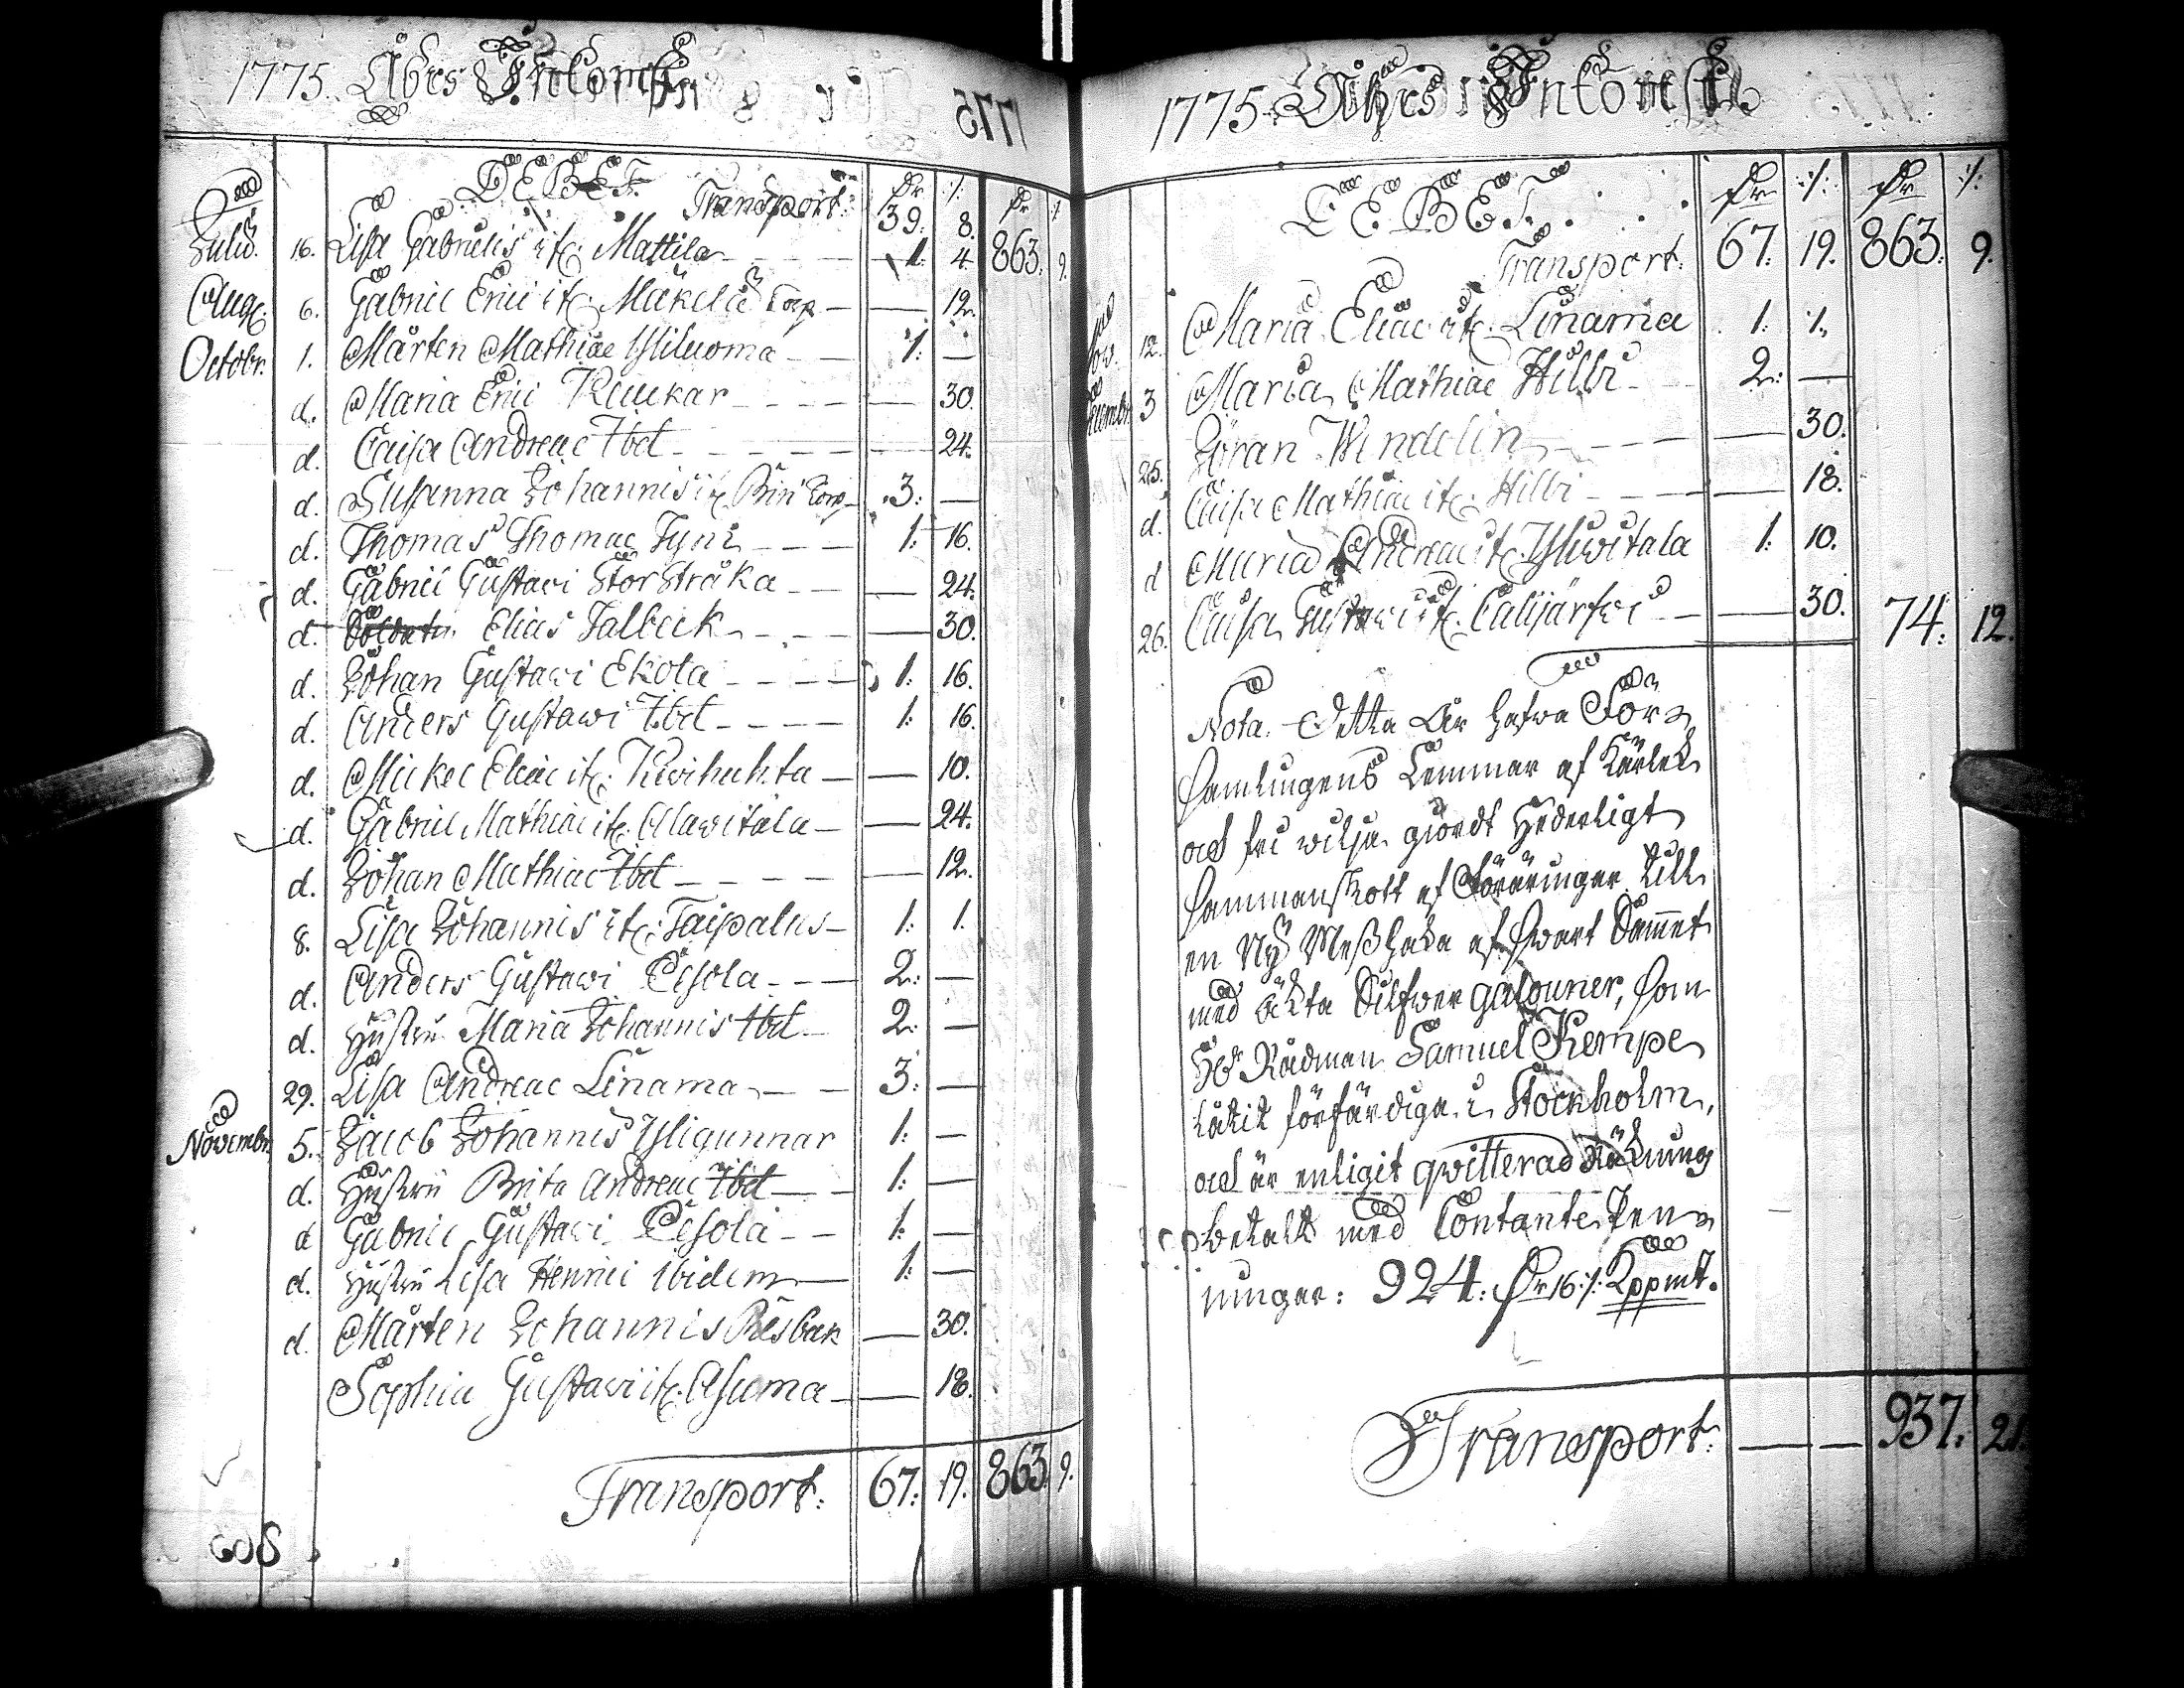 1775. Åhrs Inkomst
DEBET.
Transport: 39: 8. 863: 9.
Julii. 16. Lisa Gabrielis it: Mattila 1: 4.
Aug: 6. Gabriel Erici it: Mäkelä Torp — 12.
Octobr. 1. Mårten Mathiae Yliluoma 1: —
d. Maria Erici Kuukar — 30.
d. Caisa Andreae Ibd — 24.
d. Susanna Johannis it: Torp 3: —
d. Thomas Thomae Tyni 1: 16.
d. Gabriel Gustavi Storstråka — 24.
d. Soldatn. Elias Talbeck — 30.
d. Johan Gustavi Ekola 1: 16.
d. Anders Gustawi Ibd 1: 16.
d. Mickel Eliae it: Kivihuhta — 10.
d. Gabriel Mathiae it: Alawitala — 24.
d. Johan Mathiae Ibd — 12.
8. Lisa Johannis it: Taipalus 1: 1.
d. Anders Gustawi 2: —
d. Hustru Maria Johannis Ibd 2: —
29. Lisa Andreae Linama 3: —
Novembr. 5. Jacob Johannis Yligunnar 1: —
d. Hustru Brita Andreae Ibd 1: —
d Gabriel Gustavi 1: —
d. Hustru Lisa Henrici Ibidem 1: —
d. Mårten Johannis Risbak — 30.
Sophia Gustavi it: Asuma — 18.
Transport: 67: 19. 863: 9.
1775. Åhrs Inkomst
DEBET.
Transport: 67: 19. 863: 9.
Nov. 12. Maria Eliae it: Linama 1: 1.
Decembr. 3 Maria Mathiae Hilli 2: —
25. Göran Wendelin — 30.
d. Caisa Mathiae it: Hilli — 18.
d Maria Andreae it: Yliwitala 1: 10.
26. Caisa Gustawi it: Calijärfwi — 30. 74: 12.
Nota. Detta År hafva För=
samlingens Lemmar af Kärlek
och fri wilja giordt Hederligt
sammanskott af Föräringar till
en Ny Meßhaka af swart Sammet
med äkta Silfwer galouner, som
Hr Rådman Samuel Kempe
låtit förfärdiga i Stockholm,
och är enligit qwitterad Räkning
betalt med Contante Pen=
ningar: 924: Dr 16:/: Kppmt.
Transport: — — 937: 21.